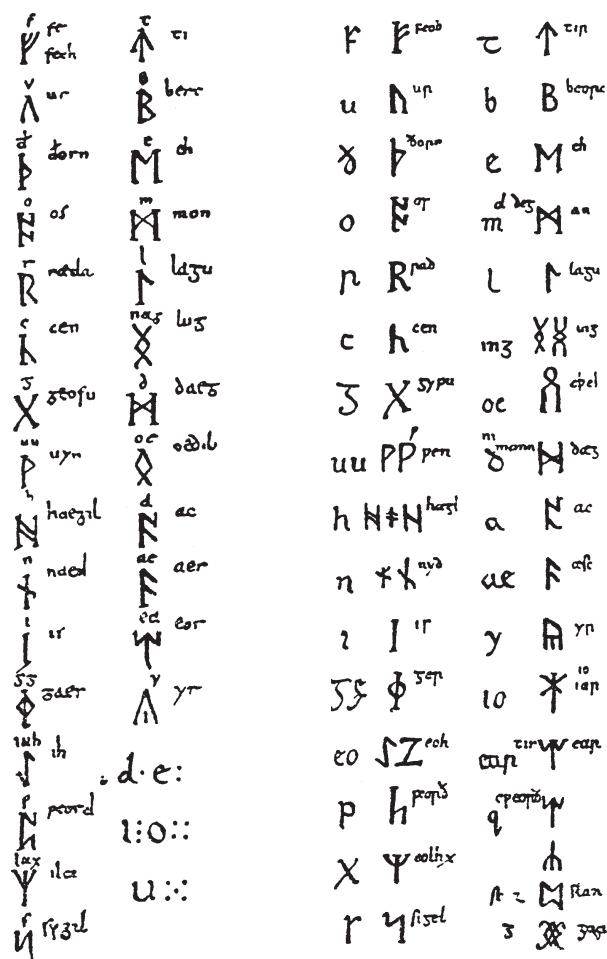 f ᚠ fe fech
v ᚢ ur
đ ᚦ đorn
o ᚩ os
r ᚱ ræda
c ᚳ cen
ᵹ ᚷ ᵹeofu
uu ᚹ uyn
h ᚻ haeᵹil
n ᚾ naed
i ᛁ ır
ᵹᵹ ᛡ ᵹaer
ıkh ᛇ ıh
p ᛈ peord
ılıx ᛉ ilcs
s ᛋ syᵹil
t ᛏ ti
b ᛒ berc
e ᛖ eh
m ᛗ mon
l ᛚ laᵹu
naᵹ ᛝ luᵹ
ꝺ ᛞ ꝺaeᵹ
oe ᛟ oedıl
a ᚪ ac
ae ᚫ aer
ea ᛠ eor
y ᚣ yr
d·e:
o
u
f ᚠ feoh
u ᚢ ur
ð ᚦ ðorn
o ᚩ os
r ᚱ rad
c ᚳ cen
ᵹ ᚷ ᵹyfu
uu ᚹ ᚹ ƿen
h ᚻ ᚼ ᚺ haᵹl
n ᚾ ᚾ nyd
ı ᛁ ıs
ᵹeꞃ
eo ᛇ eoh
p peorð
x ᛉ eolhx
s ᛋ siᵹel
t ᛏ tir
b ᛒ beorc
e ᛖ eh
m d deᵹ ᛗ an
l ᛚ laᵹu
inᵹ ᛝ inᵹ
oe ᛟ eþel
ð m mann ᛞ dæᵹ
a ᚪ ac
ae ᚫ æsc
y ᚣ yr
io ᛡ io iar
ear tir ᛠ ear
q cƿeorð
st ᛥ stan
ᵹ ᚸ ᵹar